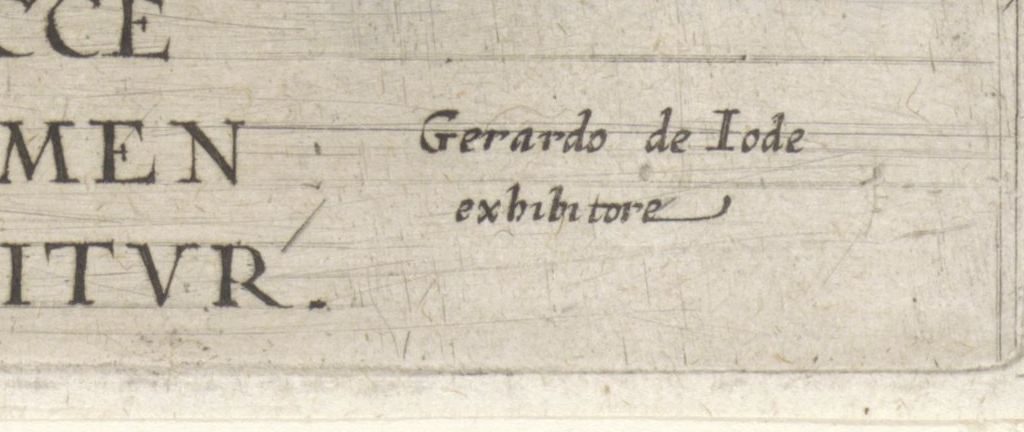 CCE
MEN
ITVR.
Gerardo de Iode
exhibitore